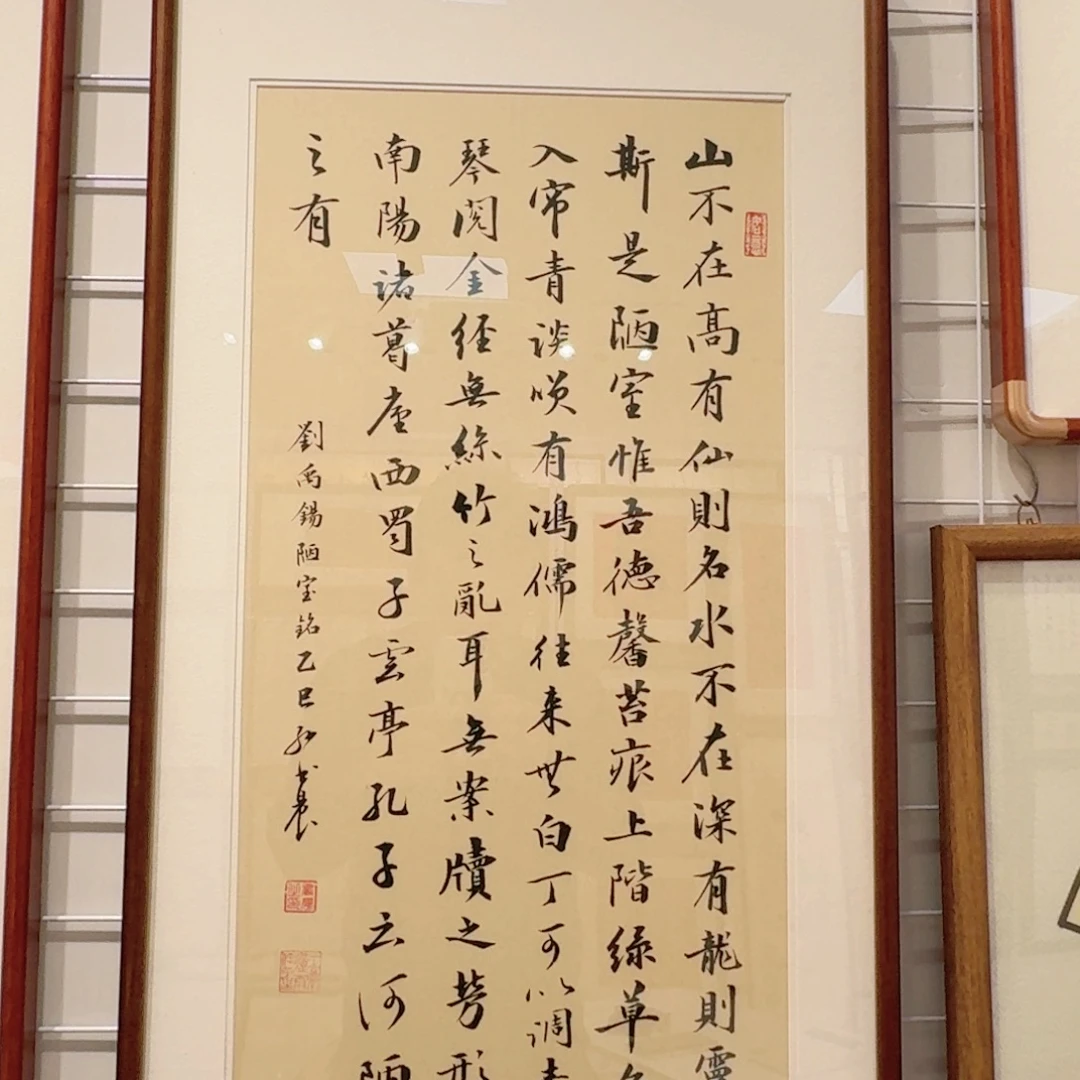 山不在高有仙則名水不在深有龍則靈
斯是陋室惟吾德馨苔痕上階緑草
入帘青談笑有鴻儒往来無白丁可以調素
琴閲金经無絲竹之亂耳無案牘之勞形
南陽诸葛庐西蜀子雲亭孔子云何陋
之有
劉禹錫陋室銘乙巳